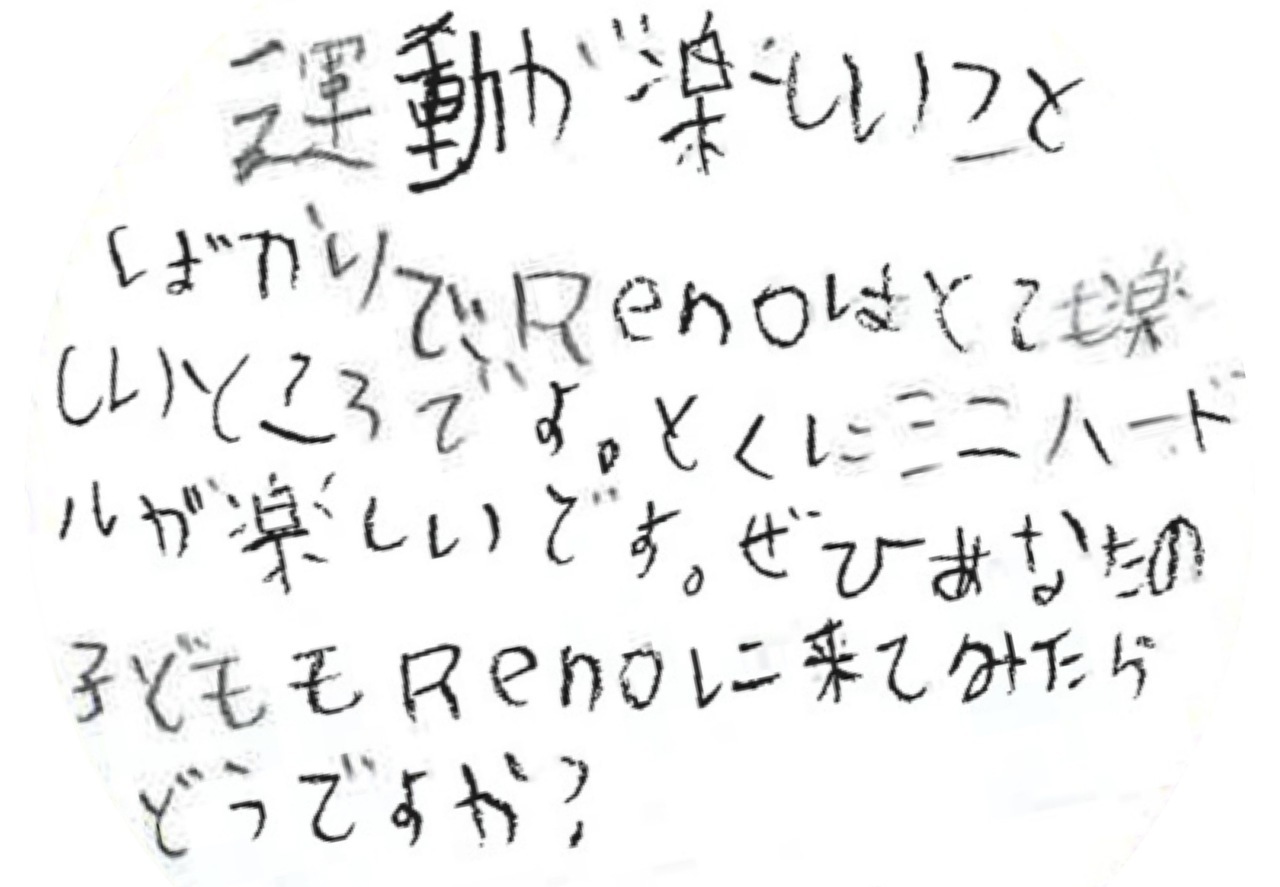 運動が楽しいこと
ばかりで、Renoはとても楽
しいところです。とくにミニハード
ルが楽しいです。ぜひあなたの
子どももRenoに来てみたら
どうですか?